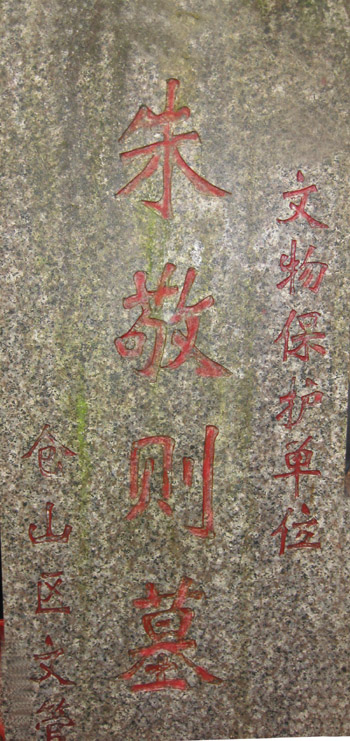 文物保护单位
朱敬则墓
仓山区文管